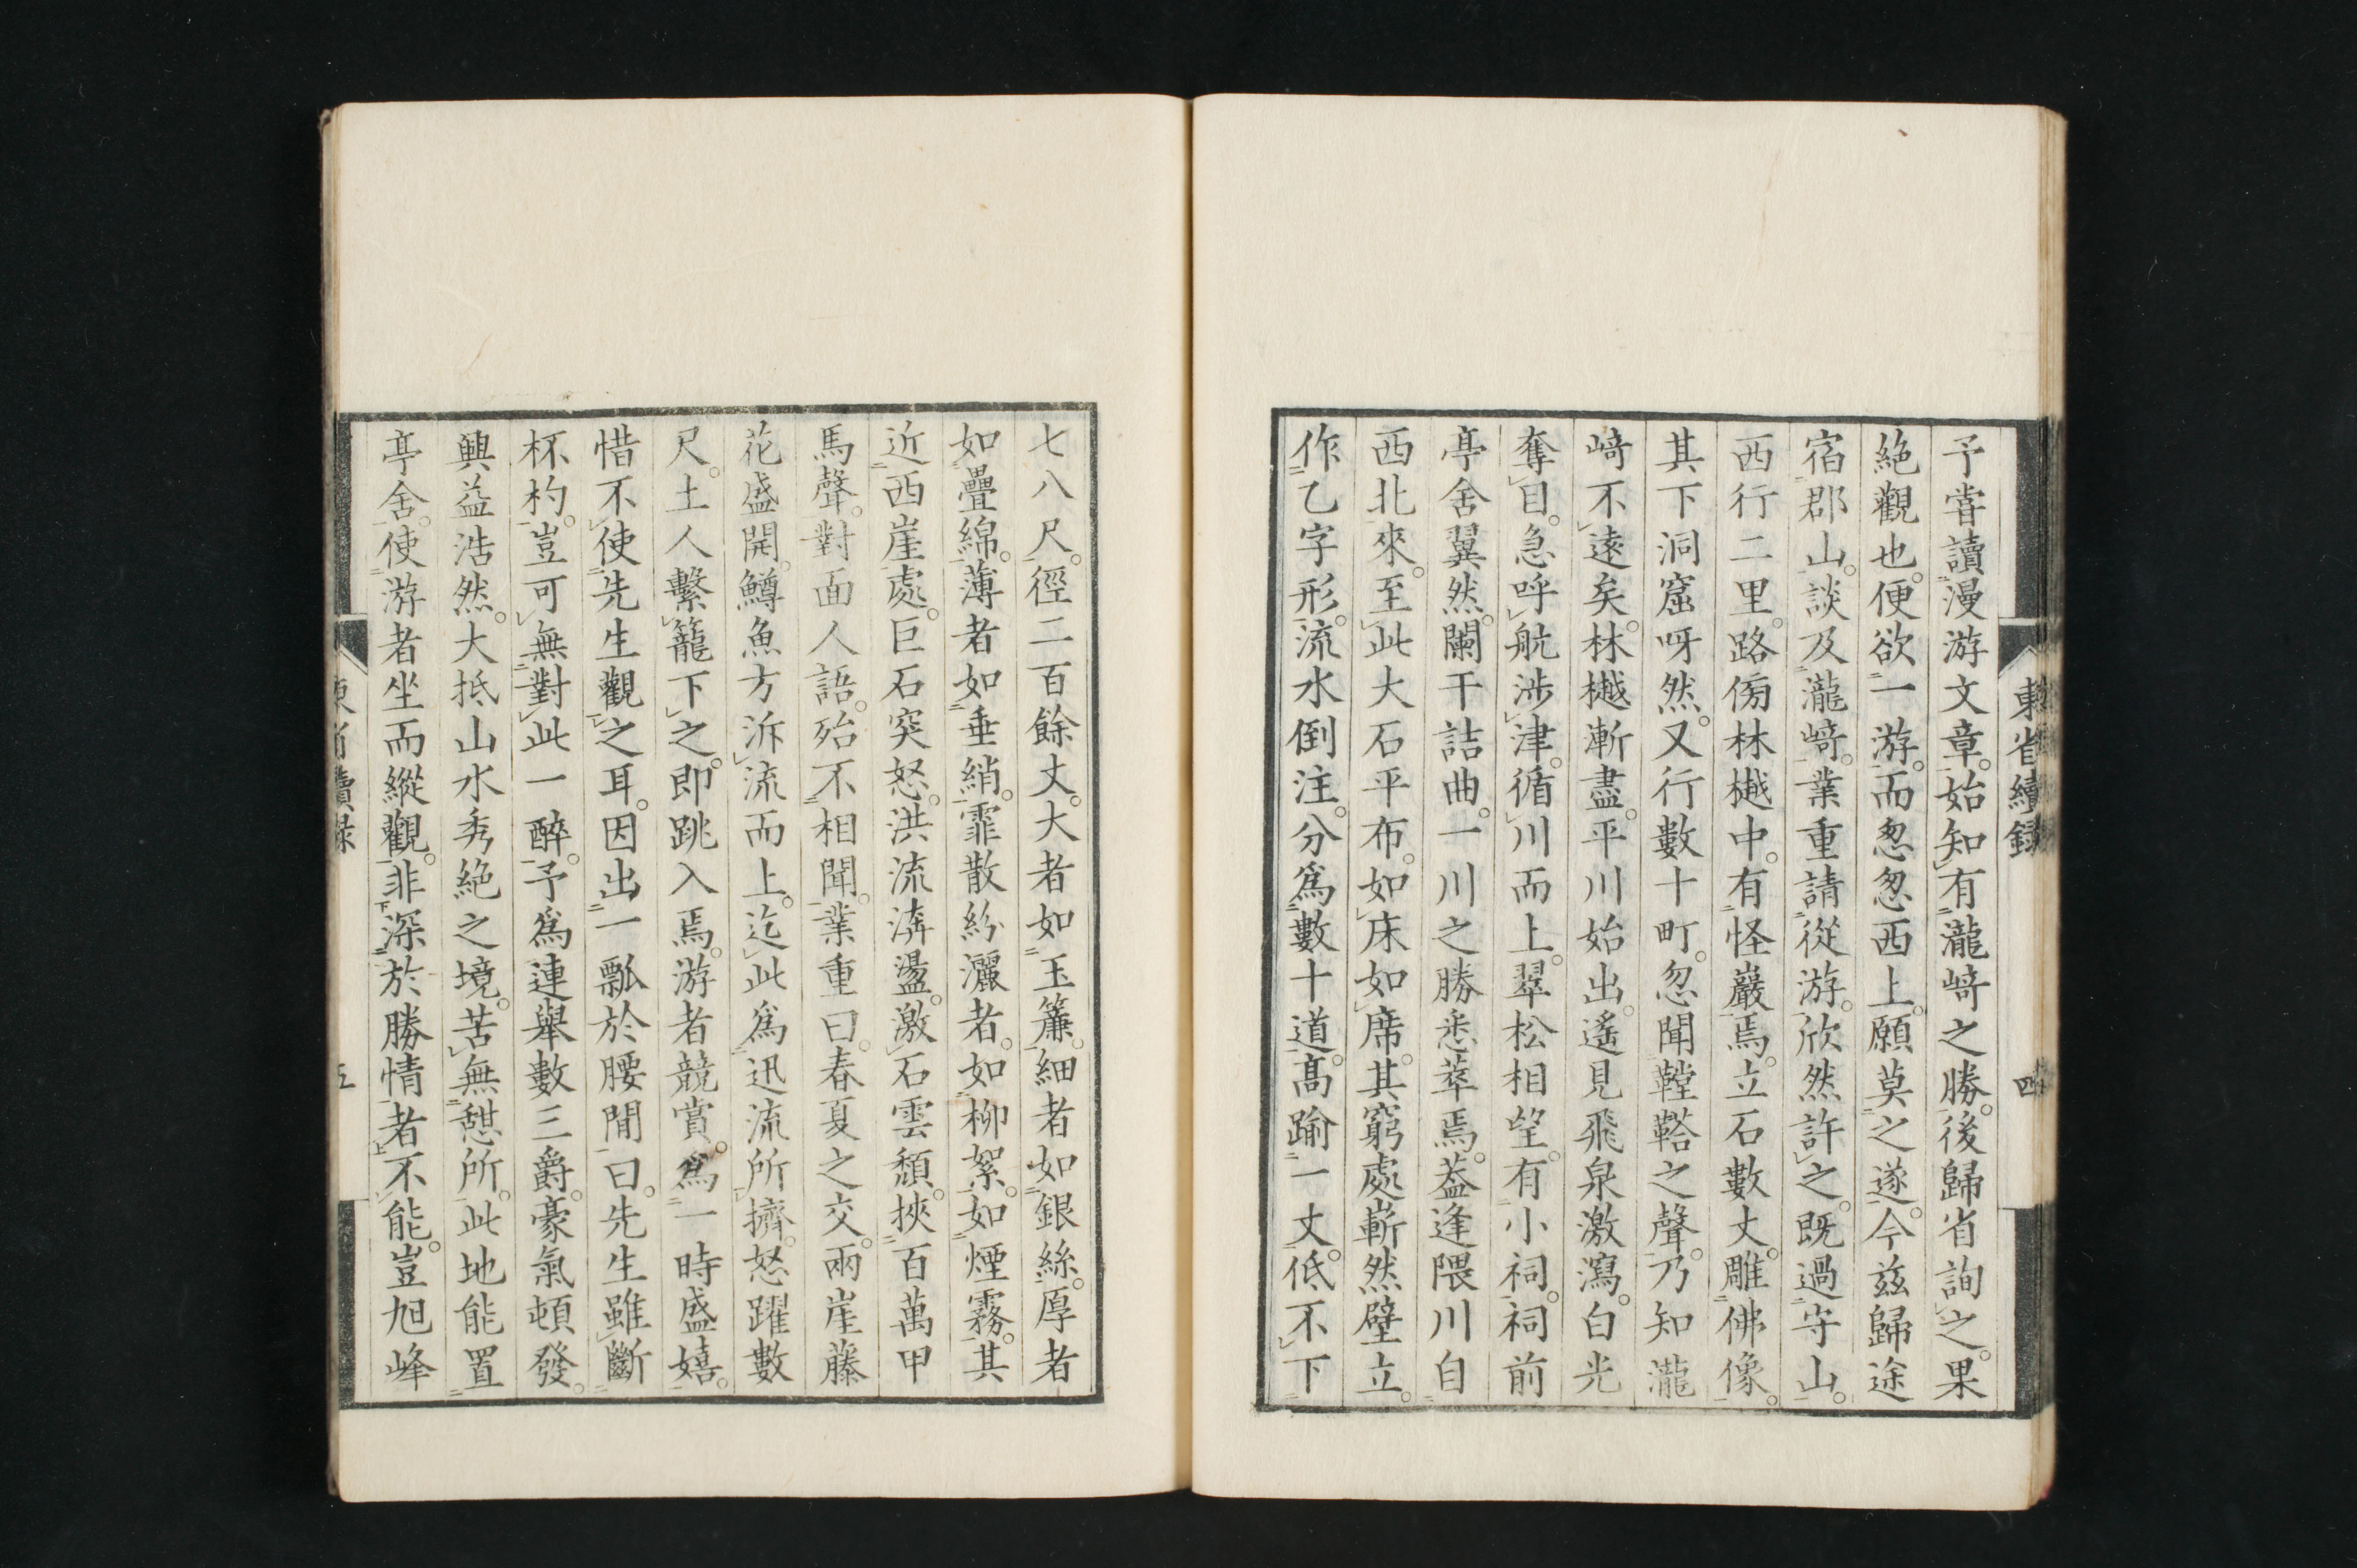 東省續錄
四
予嘗讀漫游文章。始知有瀧﨑之勝。後歸省詢之。果
絕觀也。便欲一游。而怱怱西上。願莫之遂。今兹歸途
宿郡山。談及瀧﨑。業重請從游。欣然許之。既過守山。
西行二里。路傍林樾中。有怪巖焉。立石數丈。雕佛像。
其下洞窟呀然。又行數十町。忽聞鞺鞳之聲。乃知瀧
﨑不遠矣。林樾漸盡。平川始出。遙見飛泉激瀉。白光
奪目。急呼航涉津。循川而上。翠松相望。有小祠。祠前
亭舍翼然。闌干詰曲。一川之勝悉萃焉。葢逢隈川自
西北來。至此大石平布。如床如席。其窮處嶄然壁立。
作乙字形。流水倒注。分爲數十道。高踰一丈。低不下
七八尺。徑二百餘丈。大者如玉簾。細者如銀絲。厚者
如疊綿。薄者如垂綃。霏散紛灑者。如柳絮。如煙霧。其
近西崖處。巨石突怒。洪流渀盪。激石雲頹。挾百萬甲
馬聲。對面人語。殆不相聞。業重曰。春夏之交。兩崖藤
花盛開。鱒魚方泝流而上。迄此爲迅流所擠。怒躍數
尺。土人繫籠下之。即跳入焉。游者競賞。爲一時盛嬉。
惜不使先生觀之耳。因出一瓢於腰閒曰。先生雖斷
杯杓。豈可無對此一醉。予爲連舉數三爵。豪氣頓發。
興益浩然。大抵山水秀絕之境。苦無憇所。此地能置
亭舍。使游者坐而縱觀。非深於勝情者不能。豈旭峰
東省續錄
五